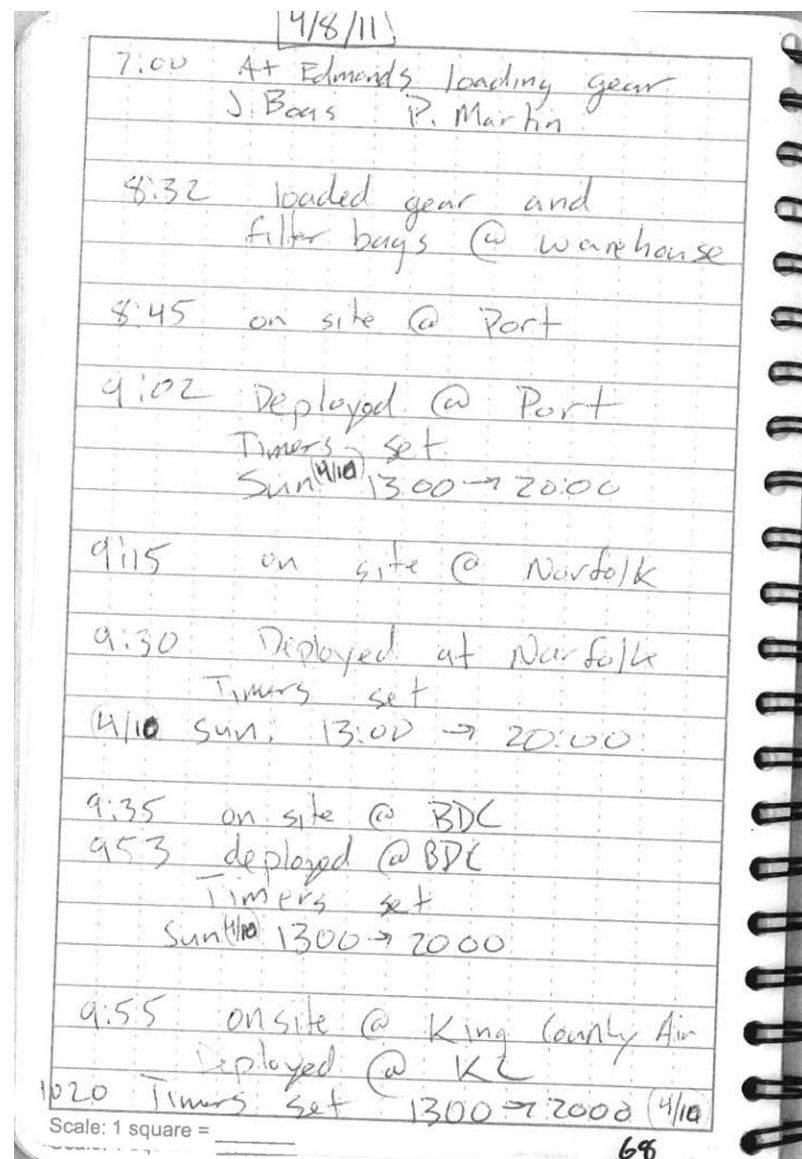 4/8/11
7:00 At Edmonds loading gear
J. Boas P. Martin
8:32 loaded gear and
filter bags @ warehouse
8:45 on site @ Port
9:02 Deployed @ Port
Timers set
Sun (4/10) 13:00 → 20:00
9:15 on site @ Norfolk
9:30 Deployed at Norfolk
Timers set
(4/10 Sun. 13:00 → 20:00
9:35 on site @ BDC
953 deployed @ BDC
Timers set
Sun (4/10) 1300 → 2000
9:55 onsite @ King County Air
Deployed @ KC
1020 Timers set 1300 → 2000 (4/10)
Scale: 1 square =
68